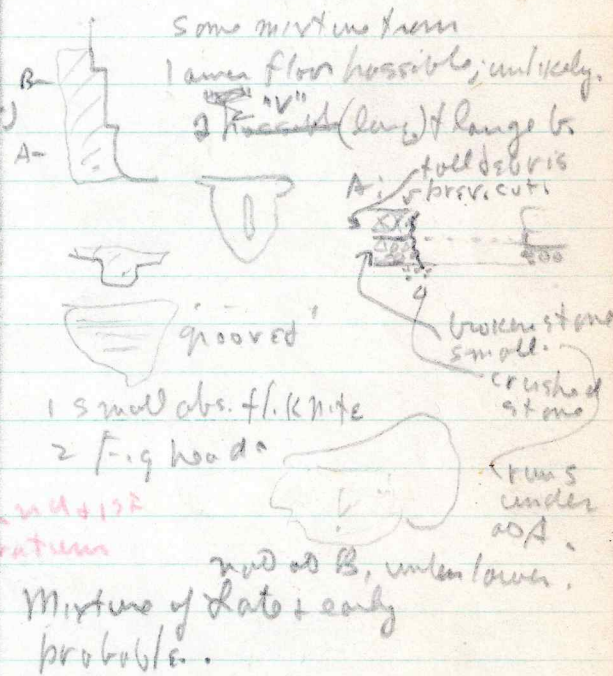 some mixture from
lower floor possible; unlikely.
B-
"V"
2 possible (long) & large b.
A-
fall debris
A: prev. cuti
'grooved'
broken stone
small.
crushed
stone
1 small obs. fl. knife
2 Fig heads
runs
under
at A.
2nd & 1st
stratum
not at B, unless lower.
Mixture of Late & early
probable.